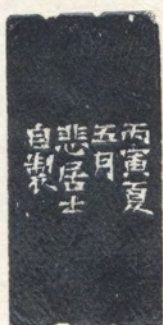 丙寅夏
五月
悲居士
自製